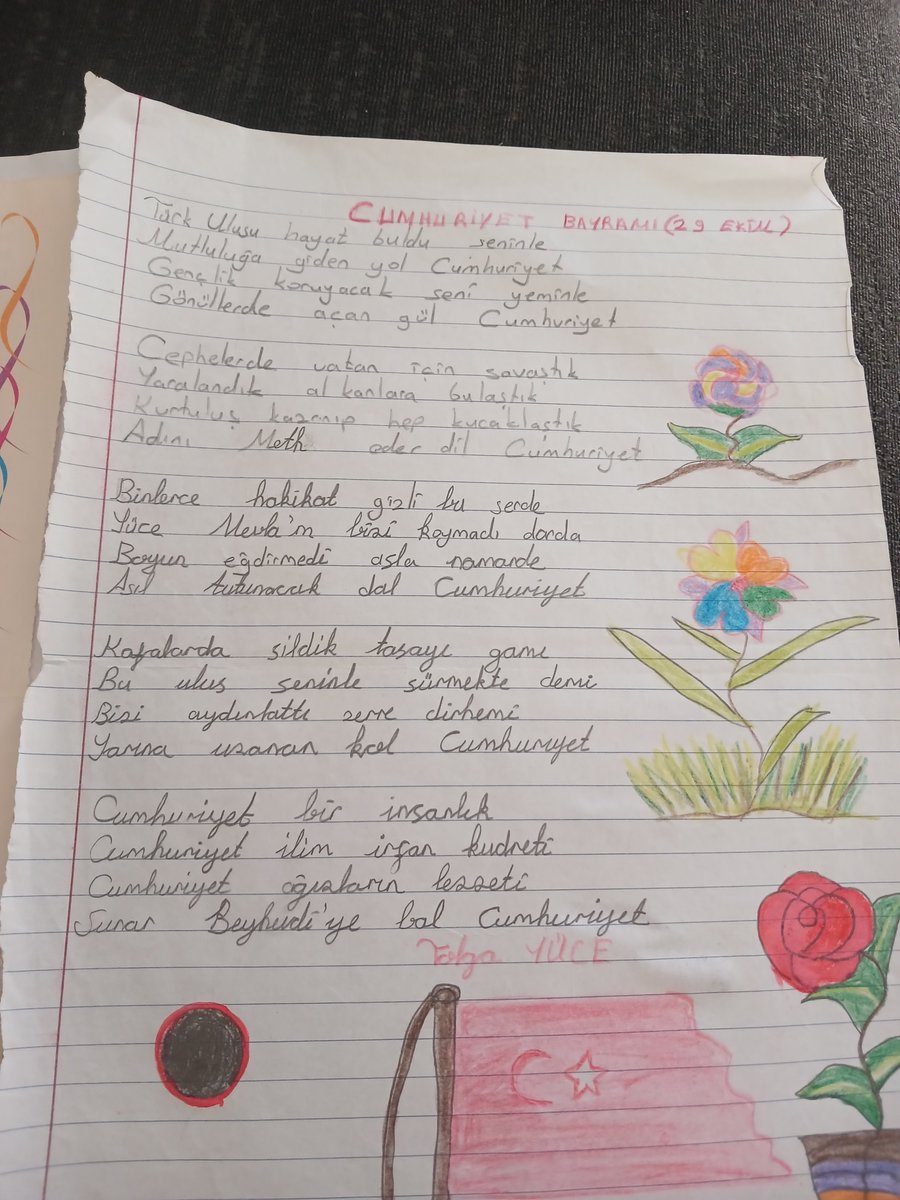 CUMHURİYET BAYRAMI (29 EKİM)
Türk Ulusu hayat buldu seninle
Mutluluğa giden yol Cumhuriyet
Gençlik koruyacak seni yeminle
Gönüllerde açan gül Cumhuriyet
Cephelerde vatan için savaştık
Yaralandık al kanlara bulaştık
Kurtuluş kazanıp hep kucaklaştık
Adını Meth eder dil Cumhuriyet
Binlerce hakikat gizli bu serde
Yüce Mevla'm bizi koymadı darda
Boyun eğdirmedi asla namerde
Asıl tutunacak dal Cumhuriyet
Kafalarda sildik tasayı gamı
Bu ulus seninle sürmekte demi
Bizi aydınlattı zerre dirhemi
Yarına uzanan kol Cumhuriyet
Cumhuriyet bir insanlık
Cumhuriyet ilim irfan kudreti
Cumhuriyet ağızların lezzeti
Sunar Beyhudi'ye bal Cumhuriyet
YÜCE